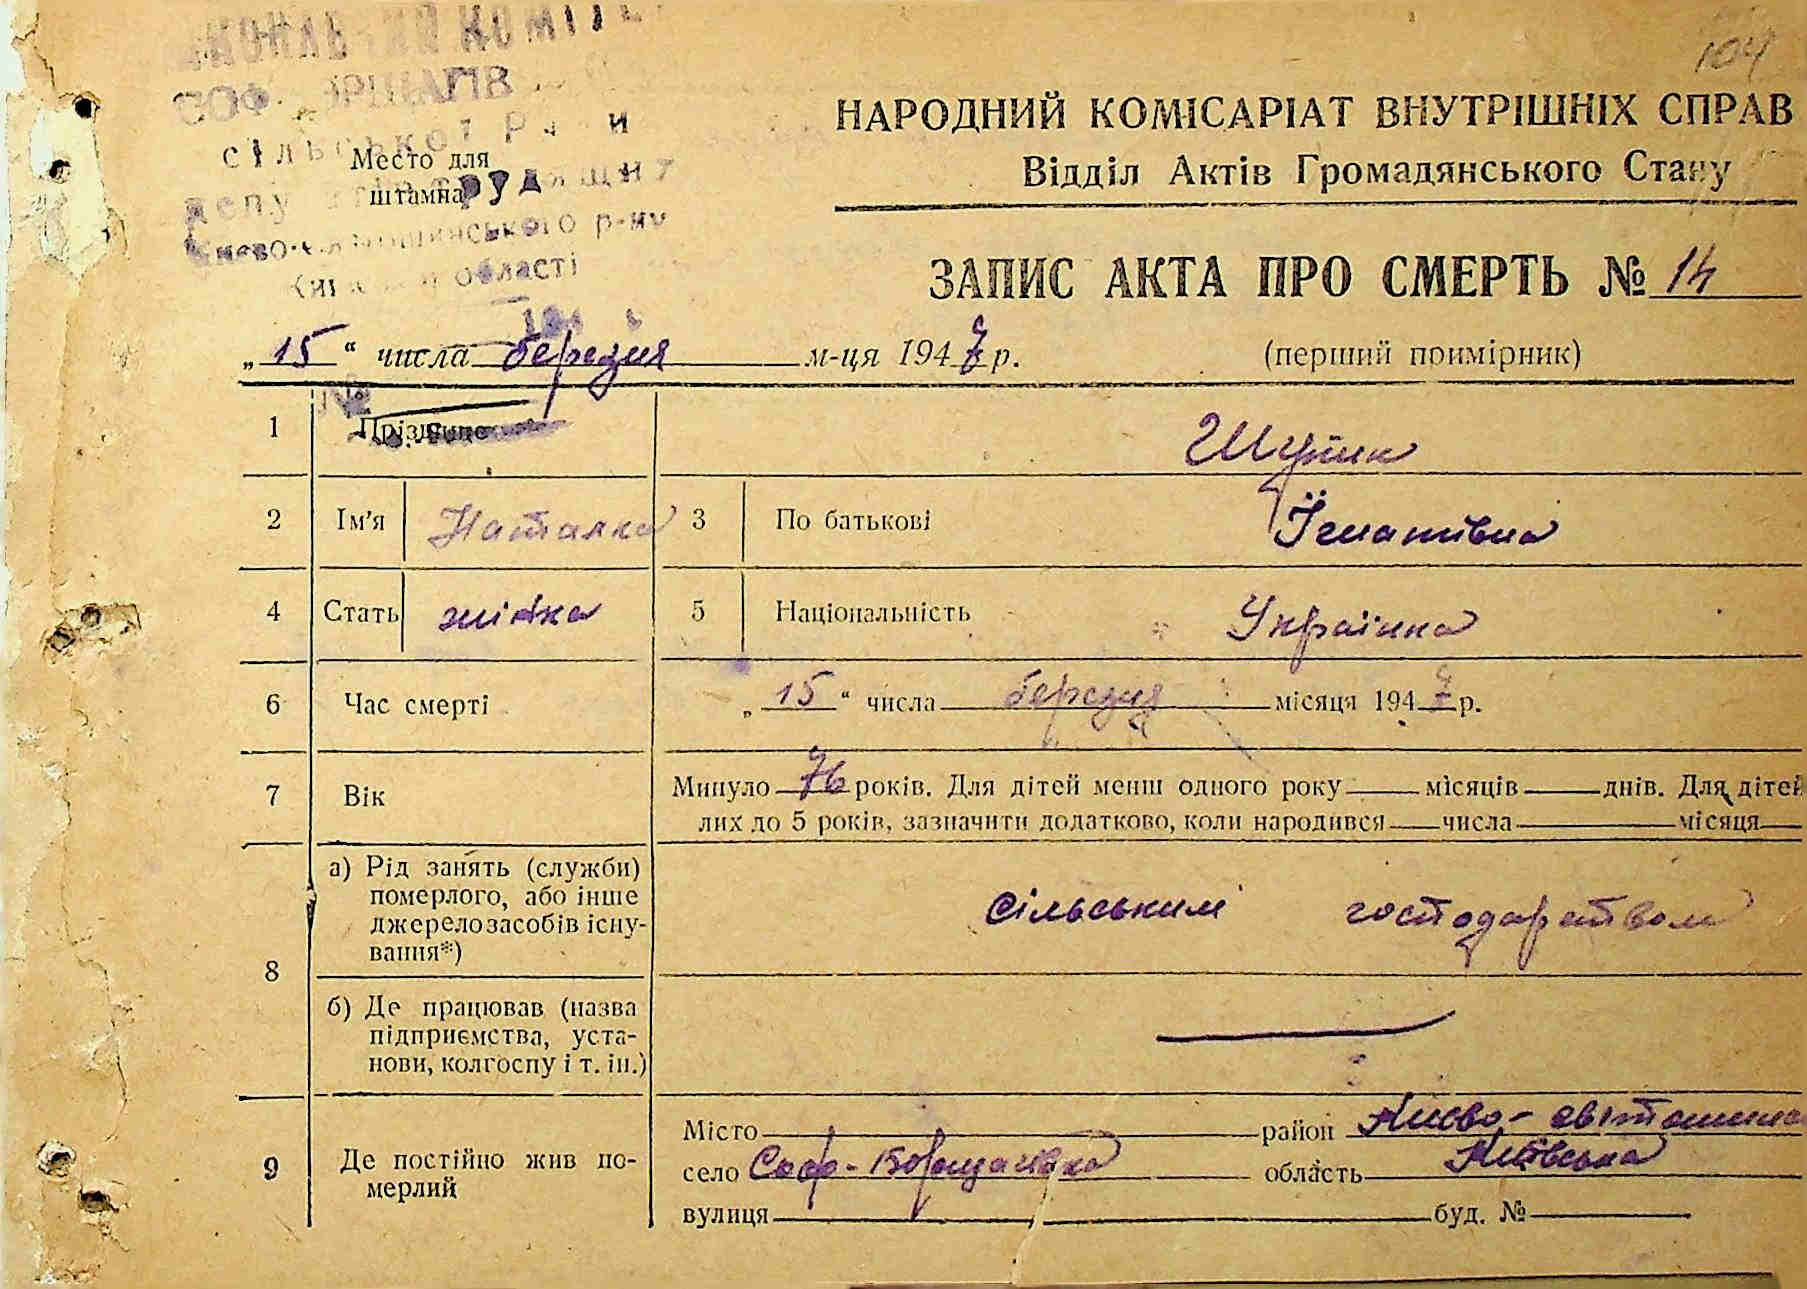 104
НАРОДНИЙ КОМІСАРІАТ ВНУТРІШНІХ СПРАВ
Відділ Актів Громадянського Стану
СОФ
сільської
Место для
штампа
труд
р-ну
області
ЗАПИС АКТА ПРО СМЕРТЬ № 14
„15“ числа березня м-ця 1947 р. (перший примірник)
1 Прізвище Шупик
2 Ім'я Наталка 3 По батькові Ігнатівна
4 Стать жінка 5 Національність Українка
6 Час смерті „15“ числа березня місяця 1947 р.
7 Вік Минуло 76 років. Для дітей менш одного року місяців днів. Для дітей
лих до 5 років, зазначити додатково, коли народився числа місяця
8 а) Рід занять (служби)
померлого, або інше
джерело засобів існу-
вання*)
сільським господарством
б) Де працював (назва
підприємства, уста-
нови, колгоспу і т. ін.)
9 Де постійно жив по-
мерлий
Місто район Києво-Святошинс
село Соф-Борщагівка область Київська
вулиця буд. №